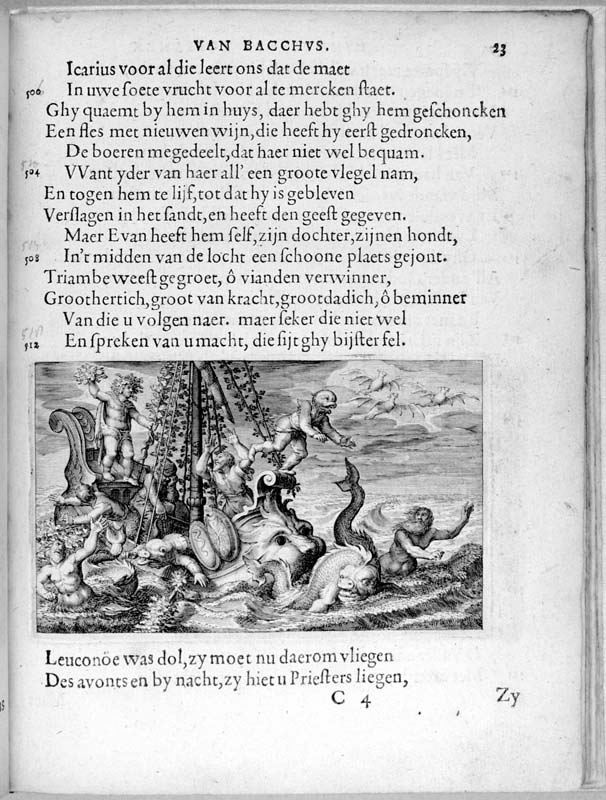 VAN BACCHVS. 23
Icarius voor al die leert ons dat de maet
506 In uwe soete vrucht voor al te mercken staet.
Ghy quaemt by hem in huys, daer hebt ghy hem geschoncken
Een fles met nieuwen wijn, die heeft hy eerst gedroncken,
De boeren megedeelt, dat haer niet wel bequam.
504 VVant yder van haer all' een groote vlegel nam,
En togen hem te lijf, tot dat hy is gebleven
Verslagen in het sandt, en heeft den geest gegeven.
Maer Evan heeft hem self, zijn dochter, zijnen hondt,
508 In't midden van de locht een schoone plaets gejont.
Triambe weest gegroet, ô vianden verwinner,
Groothertich, groot van kracht, grootdadich, ô beminner
Van die u volgen naer. maer seker die niet wel
512 En spreken van u macht, die sijt ghy bijster fel.
Leuconöe was dol, zy moet nu daerom vliegen
Des avonts en by nacht, zy hiet u Priesters liegen,
C 4 Zy